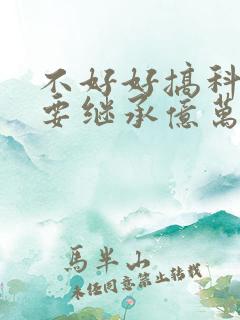 不好好搞科
要继承億萬
馬半山
未经同意禁止转载